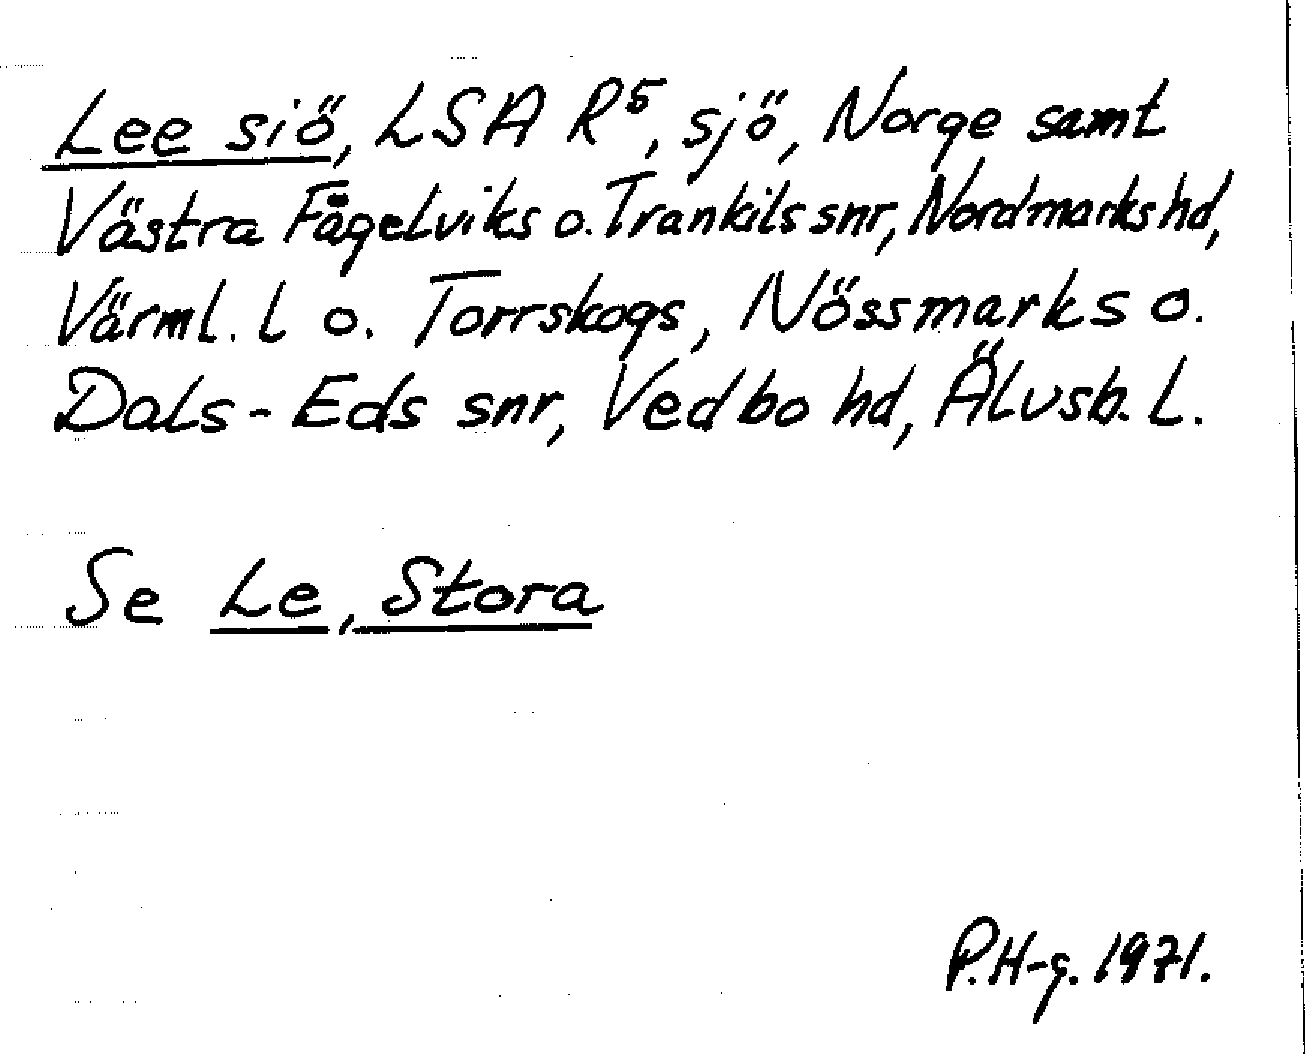 Lee siö, LSA R⁵, sjö, Norge samt
Västra Fågelviks o. Trankils snr, Nordmarks hd,
Värml. l o. Torrskogs, Nössmarks o.
Dals-Eds snr, Vedbo hd, Älvsb. l.
Se Le, Stora
P.H-g. 1971.